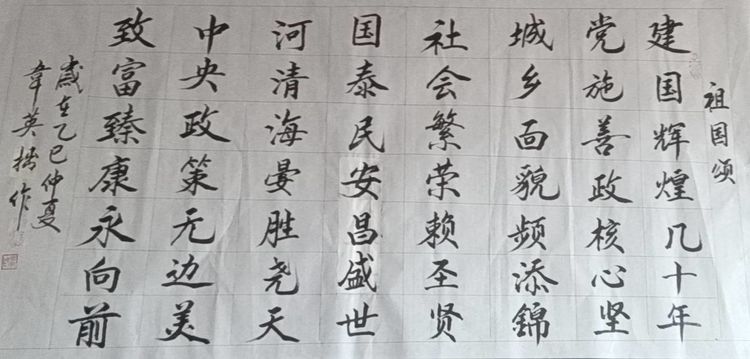 祖国颂
建国辉煌几十年
党施善政核心坚
城乡面貌频添錦
社会繁荣赖圣贤
国泰民安昌盛世
河清海晏胜尧天
中央政策无边美
致富臻康永向前
岁在乙巳仲夏
韋英 作